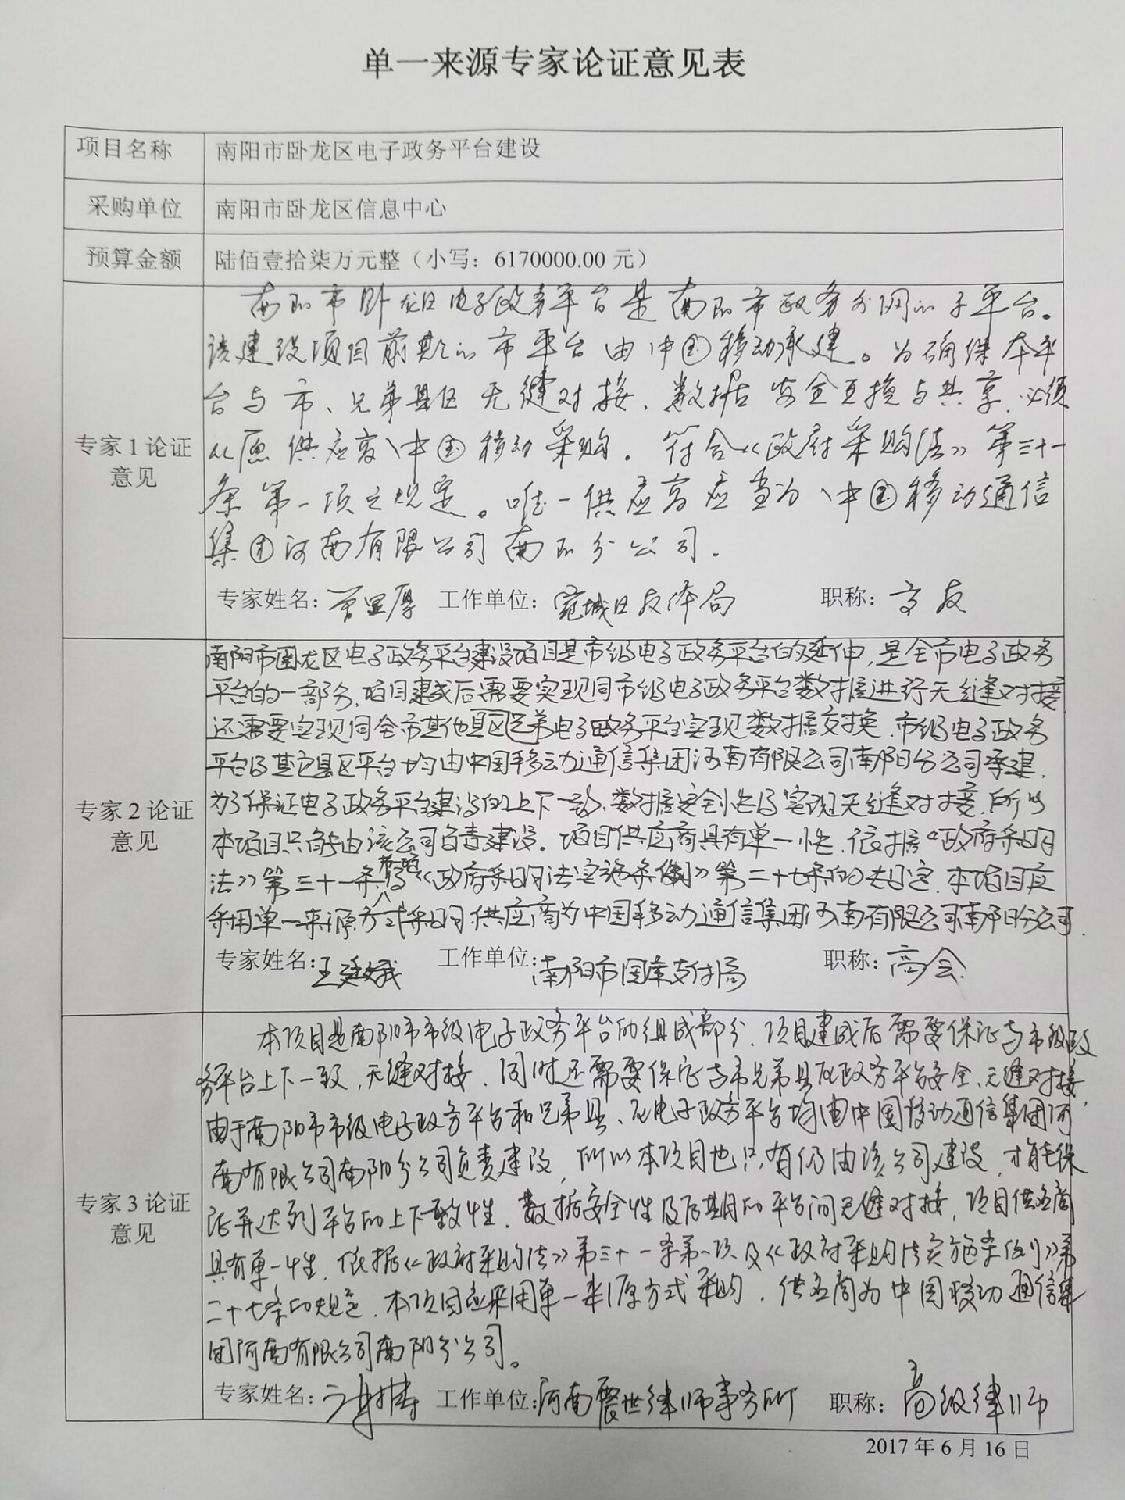 单一来源专家论证意见表
项目名称 南阳市卧龙区电子政务平台建设
采购单位 南阳市卧龙区信息中心
预算金额 陆佰壹拾柒万元整（小写：6170000.00 元）
专家 1 论证意见
南阳市卧龙区电子政务平台是南阳市政务外网的子平台。
该建设项目前期的市平台由中国移动承建。为确保本平
台与市、兄弟县区无缝对接、数据安全互换与共享，必须
从原供应商中国移动采购。符合《政府采购法》第三十一
条第一项之规定。唯一供应商应当为中国移动通信
集团河南有限公司南阳分公司。
专家姓名： 工作单位：宛城区文体局 职称：
专家 2 论证意见
南阳市卧龙区电子政务平台建设项目是市级电子政务平台的延伸，是全市电子政务
平台的一部分，项目建成后需要实现同市级电子政务平台数据进行无缝对接
还需要实现同全市其他县区兄弟电子政务平台实现数据交换，市级电子政务
平台及其它县区平台均由中国移动通信集团河南有限公司南阳分公司承建，
为了保证电子政务平台建设的上下一致，数据安全性及实现无缝对接，所以
本项目只能由该公司负责建设。项目供应商具有单一性，依据《政府采购
法》第三十一条第一项及《政府采购法实施条例》第二十七条的规定，本项目应
采用单一来源方式采购，供应商为中国移动通信集团河南有限公司南阳分公司.
专家姓名：王 工作单位：南阳市国库支付局 职称：高会
专家 3 论证意见
本项目是南阳市市级电子政务平台的组成部分，项目建成后需要保证与市级政
务平台上下一致，无缝对接，同时还需要保证与市兄弟县区政务平台安全、无缝对接，
由于南阳市市级电子政务平台和兄弟县、区电子政务平台均由中国移动通信集团河
南有限公司南阳分公司负责建设，所以本项目也只有仍由该公司建设，才能保
证并达到平台的上下一致性、数据安全性及后期的平台间无缝对接，项目供应商
具有单一性，依据《政府采购法》第三十一条第一项及《政府采购法实施条例》第
二十七条的规定，本项目应采用单一来源方式采购，供应商为中国移动通信集
团河南有限公司南阳分公司。
专家姓名： 工作单位：河南震世律师事务所 职称：高级律师
2017 年 6 月 16 日